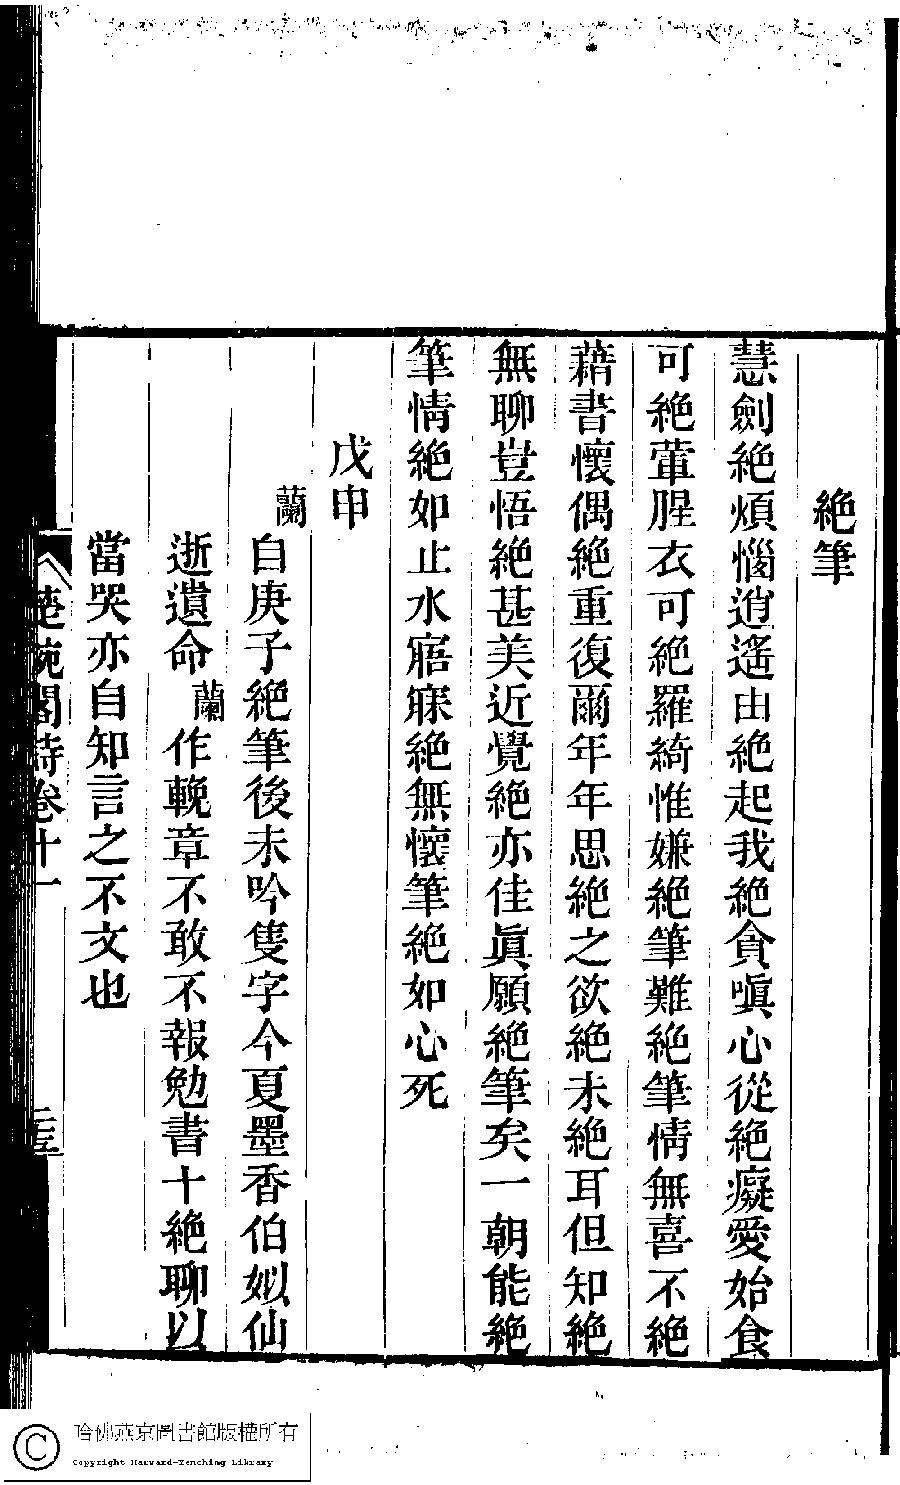 絶筆
慧劍絶煩惱逍遙由絶起我絶貪嗔心從絶癡愛始食
可絶葷腥衣可絶羅綺惟嫌絶筆難絶筆情無喜不絶
藉書懷偶絶重復爾年年思絶之欲絶未絶耳但知絶
無聊豈悟絶甚美近覺絶亦佳眞願絶筆矣一朝能絶
筆情絶如止水寤寐絶無懷筆絶如心死
戊申
蘭自庚子絶筆後未吟隻字今夏墨香伯姒仙
逝遺命蘭作輓章不敢不報勉書十絶聊以
當哭亦自知言之不文也
楚畹閣詩卷十一
哈佛燕京圖書館版權所有
Copyright Harvard-Yenching Library